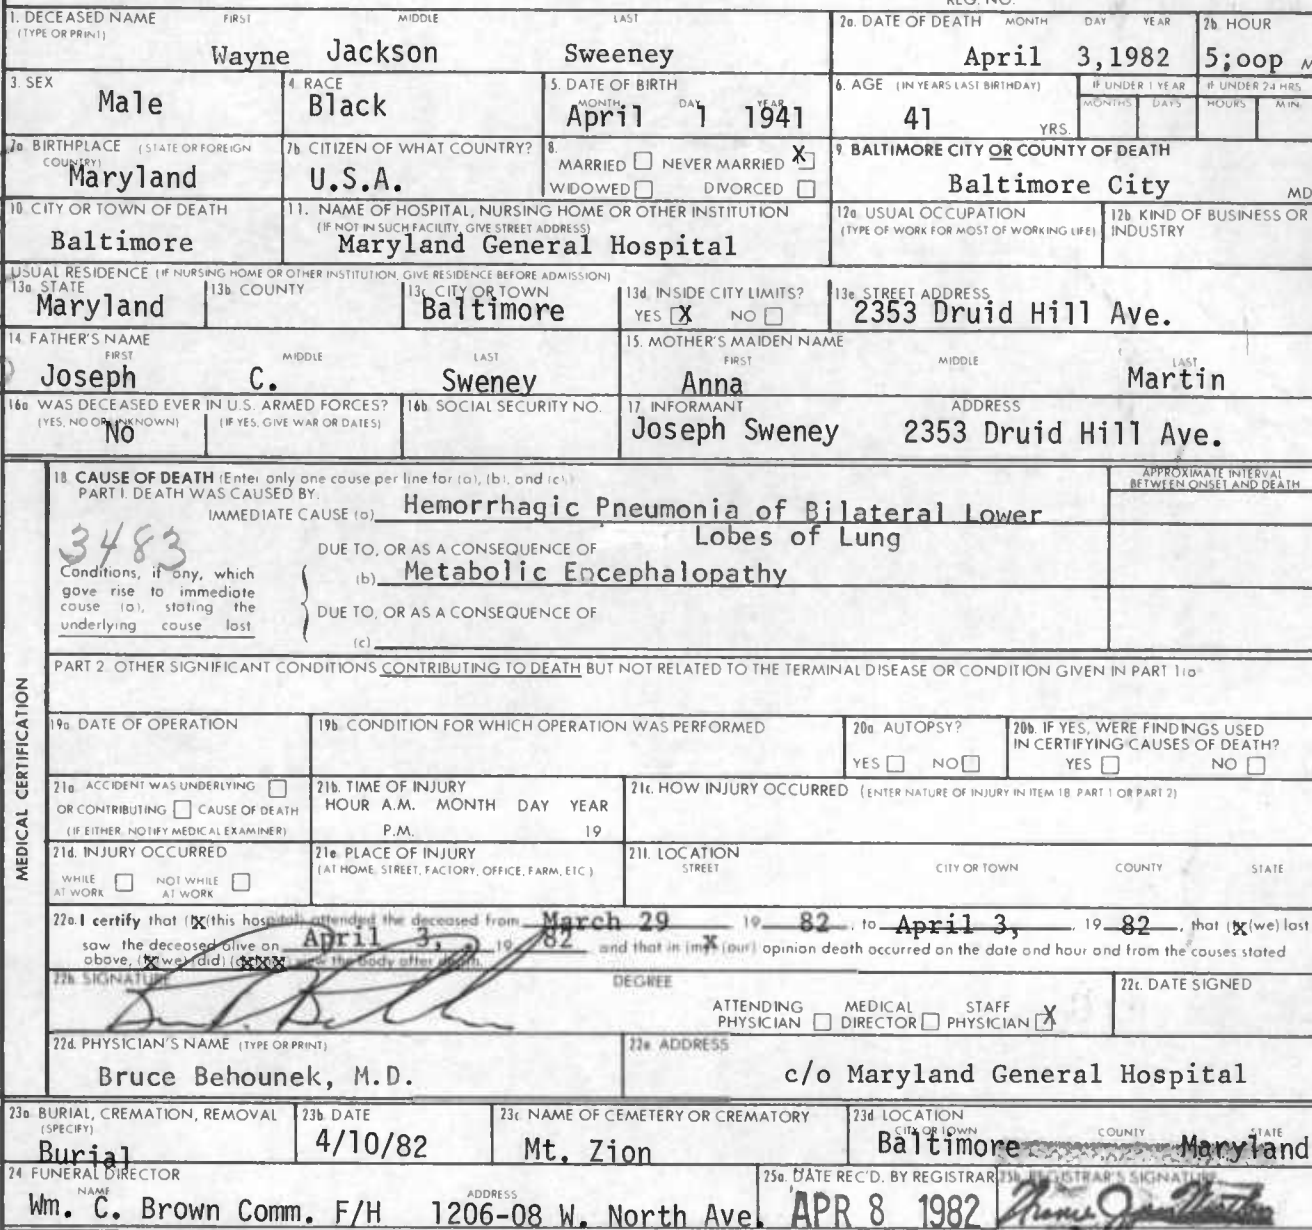 REG. NO.
1. DECEASED NAME FIRST MIDDLE LAST
(TYPE OR PRINT)
Wayne Jackson Sweeney
2a. DATE OF DEATH MONTH DAY YEAR
April 3,1982
2b. HOUR
5;oop M
3. SEX
Male
4. RACE
Black
5. DATE OF BIRTH
MONTH DAY YEAR
April 1 1941
6. AGE (IN YEARS LAST BIRTHDAY)
41 YRS.
IF UNDER 1 YEAR
MONTHS DAYS
IF UNDER 24 HRS
HOURS MIN
7a. BIRTHPLACE (STATE OR FOREIGN
COUNTRY)
Maryland
7b. CITIZEN OF WHAT COUNTRY?
U.S.A.
8.
MARRIED NEVER MARRIED X
WIDOWED DIVORCED
9. BALTIMORE CITY OR COUNTY OF DEATH
Baltimore City MD
10. CITY OR TOWN OF DEATH
Baltimore
11. NAME OF HOSPITAL, NURSING HOME OR OTHER INSTITUTION
(IF NOT IN SUCH FACILITY, GIVE STREET ADDRESS)
Maryland General Hospital
12a. USUAL OCCUPATION
(TYPE OF WORK FOR MOST OF WORKING LIFE)
12b. KIND OF BUSINESS OR
INDUSTRY
USUAL RESIDENCE (IF NURSING HOME OR OTHER INSTITUTION, GIVE RESIDENCE BEFORE ADMISSION)
13a. STATE
Maryland
13b. COUNTY
13c. CITY OR TOWN
Baltimore
13d. INSIDE CITY LIMITS?
YES X NO
13e. STREET ADDRESS
2353 Druid Hill Ave.
14. FATHER'S NAME
FIRST MIDDLE LAST
Joseph C. Sweney
15. MOTHER'S MAIDEN NAME
FIRST MIDDLE LAST
Anna Martin
16a. WAS DECEASED EVER IN U.S. ARMED FORCES?
(YES, NO OR UNKNOWN) (IF YES, GIVE WAR OR DATES)
No
16b. SOCIAL SECURITY NO.
17. INFORMANT ADDRESS
Joseph Sweney 2353 Druid Hill Ave.
MEDICAL CERTIFICATION
18. CAUSE OF DEATH (Enter only one cause per line for (a), (b), and (c).)
APPROXIMATE INTERVAL
BETWEEN ONSET AND DEATH
PART I. DEATH WAS CAUSED BY:
IMMEDIATE CAUSE (a) Hemorrhagic Pneumonia of Bilateral Lower
Lobes of Lung
3483
DUE TO, OR AS A CONSEQUENCE OF
Conditions, if any, which
gave rise to immediate
cause (a), stating the
underlying cause last
(b) Metabolic Encephalopathy
DUE TO, OR AS A CONSEQUENCE OF
(c)
PART 2. OTHER SIGNIFICANT CONDITIONS CONTRIBUTING TO DEATH BUT NOT RELATED TO THE TERMINAL DISEASE OR CONDITION GIVEN IN PART 1(a)
19a. DATE OF OPERATION
19b. CONDITION FOR WHICH OPERATION WAS PERFORMED
20a. AUTOPSY?
YES NO
20b. IF YES, WERE FINDINGS USED
IN CERTIFYING CAUSES OF DEATH?
YES NO
21a. ACCIDENT WAS UNDERLYING
OR CONTRIBUTING CAUSE OF DEATH
(IF EITHER, NOTIFY MEDICAL EXAMINER)
21b. TIME OF INJURY
HOUR A.M. MONTH DAY YEAR
P.M. 19
21c. HOW INJURY OCCURRED (ENTER NATURE OF INJURY IN ITEM 18 PART 1 OR PART 2)
21d. INJURY OCCURRED
WHILE NOT WHILE
AT WORK AT WORK
21e. PLACE OF INJURY
(AT HOME, STREET, FACTORY, OFFICE, FARM, ETC.)
21f. LOCATION
STREET CITY OR TOWN COUNTY STATE
22a. I certify that (X(this hospital) attended the deceased from March 29 19 82, to April 3, 19 82, that (X(we) last
saw the deceased alive on April 3, , 19 82 and that in (myX (our) opinion death occurred on the date and hour and from the causes stated
above, (X(we) (did) (XXX view the body after death.
22b. SIGNATURE
DEGREE
ATTENDING MEDICAL STAFF
PHYSICIAN DIRECTOR PHYSICIAN X
22c. DATE SIGNED
22d. PHYSICIAN'S NAME (TYPE OR PRINT)
Bruce Behounek, M.D.
22e. ADDRESS
c/o Maryland General Hospital
23a. BURIAL, CREMATION, REMOVAL
(SPECIFY)
Burial
23b. DATE
4/10/82
23c. NAME OF CEMETERY OR CREMATORY
Mt. Zion
23d. LOCATION
CITY OR TOWN COUNTY STATE
Baltimore Maryland
24. FUNERAL DIRECTOR
NAME ADDRESS
Wm. C. Brown Comm. F/H 1206-08 W. North Ave.
25a. DATE REC'D. BY REGISTRAR
APR 8 1982
25b. REGISTRAR'S SIGNATURE